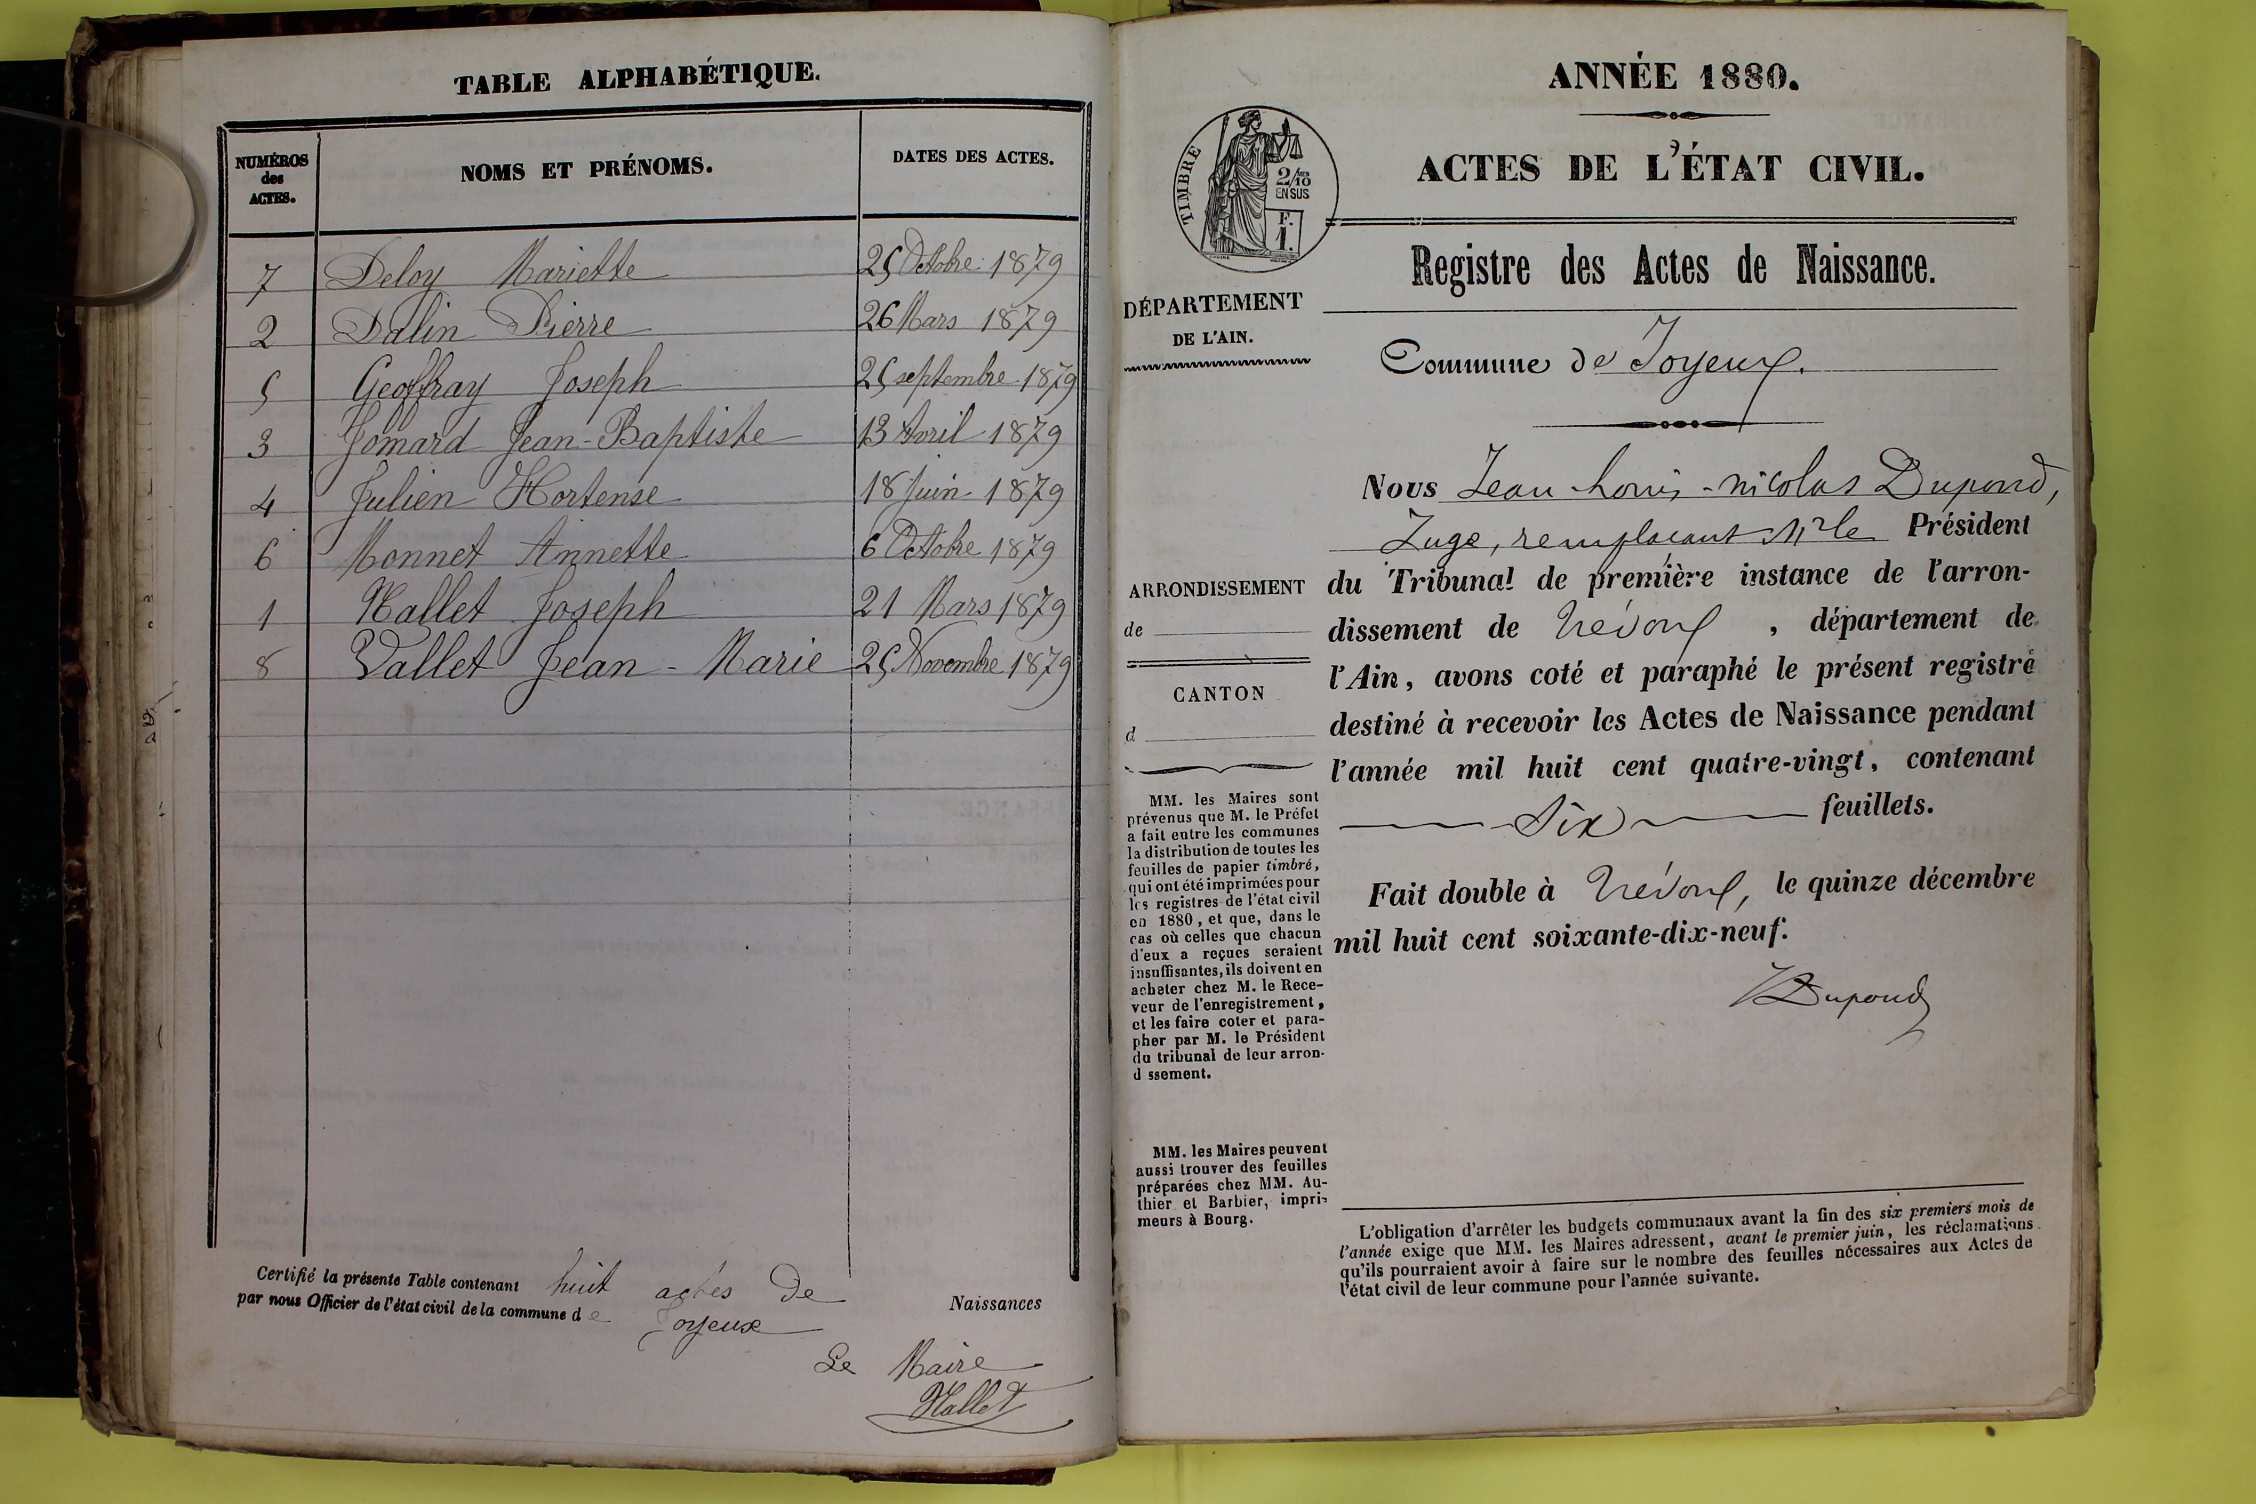 TABLE ALPHABÉTIQUE.
NUMÉROS
des
ACTES.
NOMS ET PRÉNOMS.
DATES DES ACTES.
7 Deloy Mariette 25 Octobre 1879
2 Dalin Pierre 26 Mars 1879
5 Geoffray Joseph 25 septembre 1879
3 Jomard Jean-Baptiste 13 Avril 1879
4 Julien Hortense 18 Juin 1879
6 Monnet Annette 6 Octobre 1879
1 Nallet Joseph 21 Mars 1879
8 Vallet Jean-Marie 25 Novembre 1879
Certifié la présente Table contenant huit actes de Naissances
par nous Officier de l'état civil de la commune de Joyeux
Le Maire
Nallet
ANNÉE 1880.
ACTES DE L'ÉTAT CIVIL.
TIMBRE
2/10
EN SUS
F.
1.
Registre des Actes de Naissance.
DÉPARTEMENT
DE L'AIN.
Commune de Joyeux.
Nous Jean-Louis-Nicolas Dupond,
Juge, remplaçant Mr le Président
du Tribunal de première instance de l'arron-
dissement de Trévoux, département de
l'Ain, avons coté et paraphé le présent registre
destiné à recevoir les Actes de Naissance pendant
l'année mil huit cent quatre-vingt, contenant
Six feuillets.
Fait double à Trévoux, le quinze décembre
mil huit cent soixante-dix-neuf.
Dupond
ARRONDISSEMENT
de
CANTON
d
MM. les Maires sont
prévenus que M. le Préfet
a fait entre les communes
la distribution de toutes les
feuilles de papier timbré,
qui ont été imprimées pour
les registres de l'état civil
en 1880, et que, dans le
cas où celles que chacun
d'eux a reçues seraient
insuffisantes, ils doivent en
acheter chez M. le Rece-
veur de l'enregistrement,
et les faire coter et para-
pher par M. le Président
du tribunal de leur arron-
d ssement.
MM. les Maires peuvent
aussi trouver des feuilles
préparées chez MM. Au-
thier et Barbier, impri-
meurs à Bourg.
L'obligation d'arrêter les budgets communaux avant la fin des six premiers mois de
l'année exige que MM. les Maires adressent, avant le premier juin, les réclamations
qu'ils pourraient avoir à faire sur le nombre des feuilles nécessaires aux Actes de
l'état civil de leur commune pour l'année suivante.